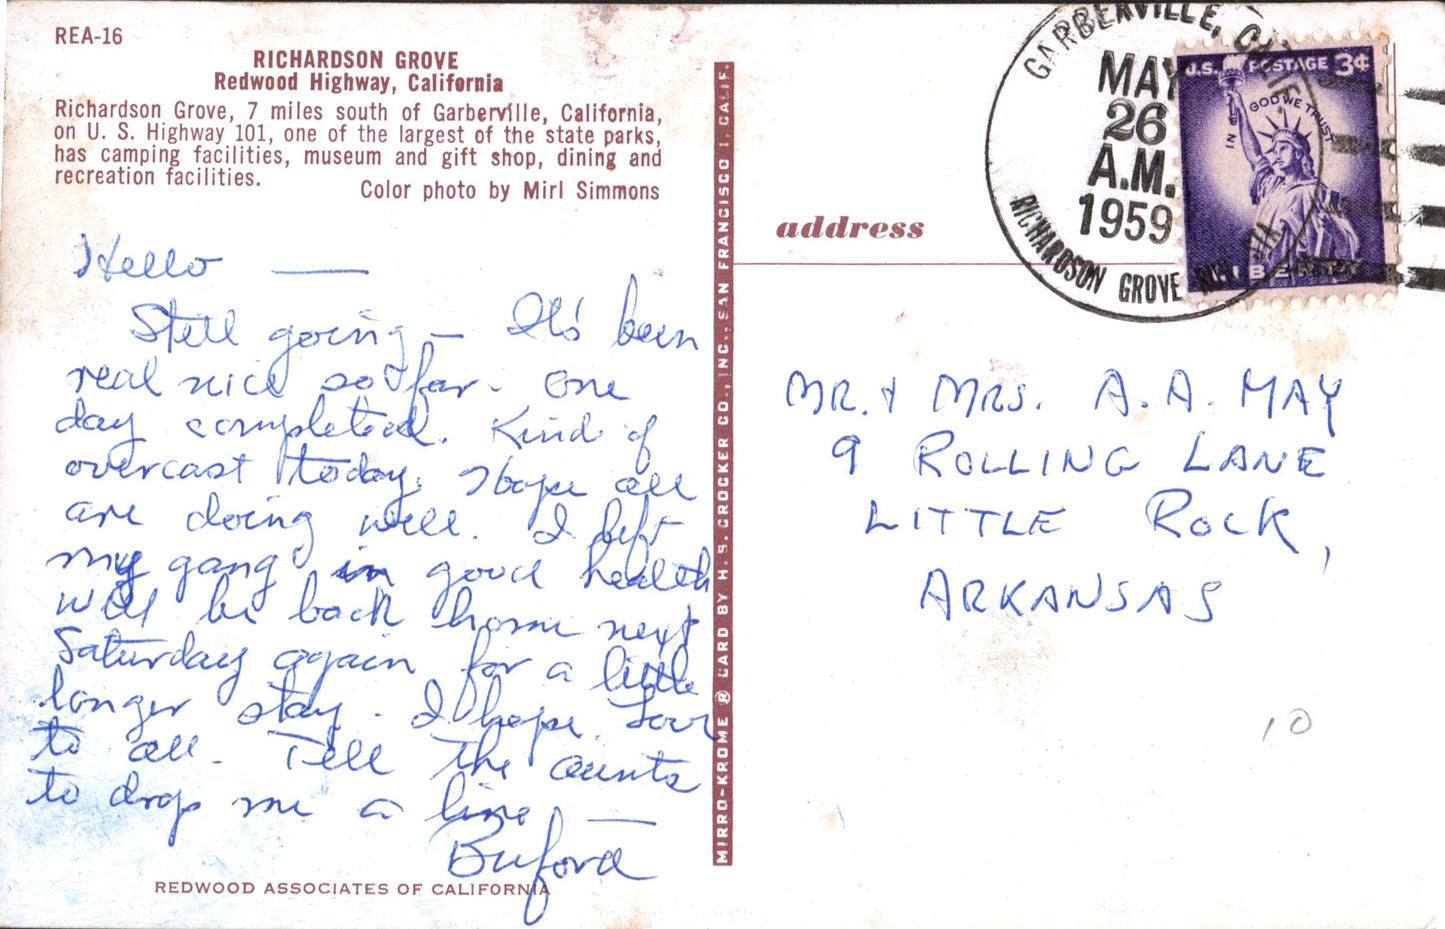 REA-16
RICHARDSON GROVE
Redwood Highway, California
Richardson Grove, 7 miles south of Garberville, California,
on U. S. Highway 101, one of the largest of the state parks,
has camping facilities, museum and gift shop, dining and
recreation facilities.
Color photo by Mirl Simmons
Hello —
Still going — It's been
real nice so far. One
day completed. Kind of
overcast today. Hope all
are doing well. I left
my gang in good health
will be back home next
Saturday again for a little
longer stay. I hope. Love
to all. Tell the aunts
to drop me a line —
Buford
REDWOOD ASSOCIATES OF CALIFORNIA
MIRRO-KROME ® CARD BY H. S. CROCKER CO., INC., SAN FRANCISCO 1, CALIF.
address
GARBERVILLE, CALIF.
MAY
26
A.M.
1959
RICHARDSON GROVE RUR. STA.
U.S. POSTAGE 3¢
IN GOD WE TRUST
LIBERTY
MR. & MRS. A. A. MAY
9 ROLLING LANE
LITTLE ROCK,
ARKANSAS
10